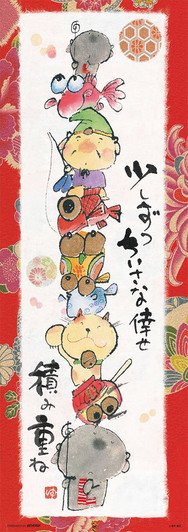 少しずつ
ちいさな倖せ
積み重ね